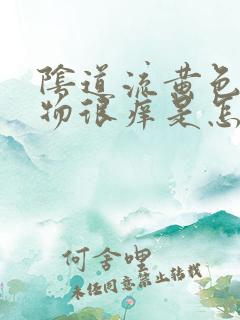 陰道流黄色
物很痒是怎
何舍哩
未经同意禁止转载